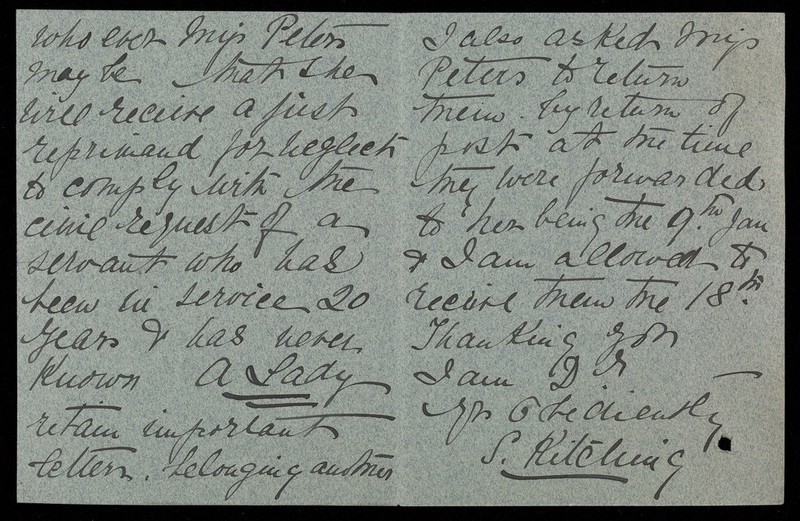 who ever Miss Peters
may be that she
will receive a just
reprimand for neglect
to comply with the
civil request of a
servant who has
been in service 20
years & has never
known A Lady
retain important
letters. belonging another
I also asked Miss
Peters to return
them. by return of
post at the time
they were forwarded
to her being the 9.th Jan
& I am allowed to
receive them the 18.th
Thanking you
I am D Sr
yrs Obediently
S. Kitching